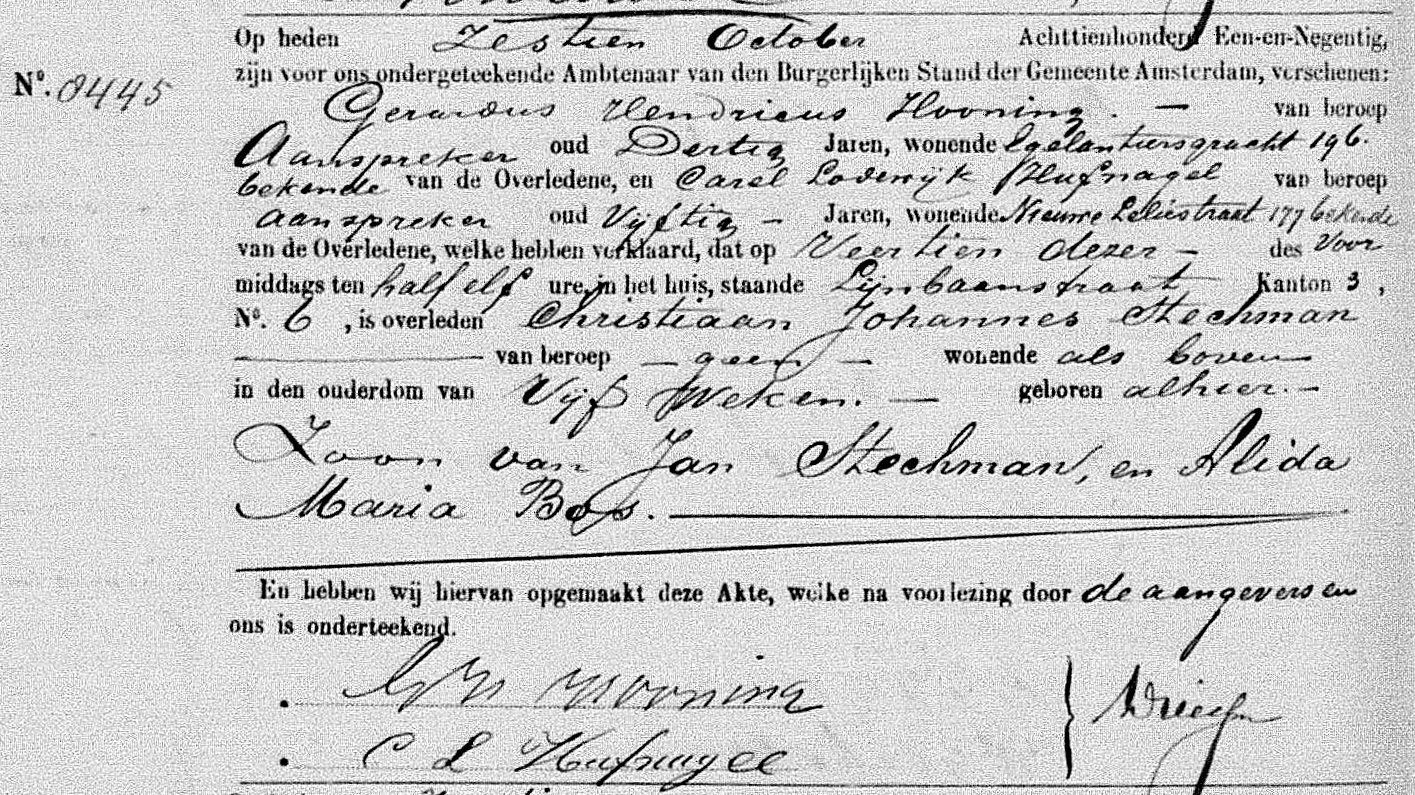 Op heden Zestien October Achttienhonderd Een-en-Negentig,
zijn voor ons ondergeteekende Ambtenaar van den Burgerlijken Stand der Gemeente Amsterdam, verschenen:
N°. 8445
Gerardus Hendricus Hooning. — van beroep
Aanspreker oud Dertig Jaren, wonende Egelantiersgracht 196.
bekende van de Overledene, en Carel Lodewijk Hufnagel van beroep
aanspreker oud Vijftig — Jaren, wonende Nieuwe Leliestraat 177 bekende
van de Overledene, welke hebben verklaard, dat op Veertien dezer — des Voor
middags ten half elf ure, in het huis, staande Lijnbaanstraat Kanton 3,
N°. 6, is overleden Christiaan Johannes Stechman
— van beroep — geen — wonende als boven
in den ouderdom van Vijf Weken. — geboren alhier. —
Zoon van Jan Stechman, en Alida
Maria Bos. —
En hebben wij hiervan opgemaakt deze Akte, welke na voorlezing door de aangevers en
ons is onderteekend.
GH Hooning
C L Hufnagel